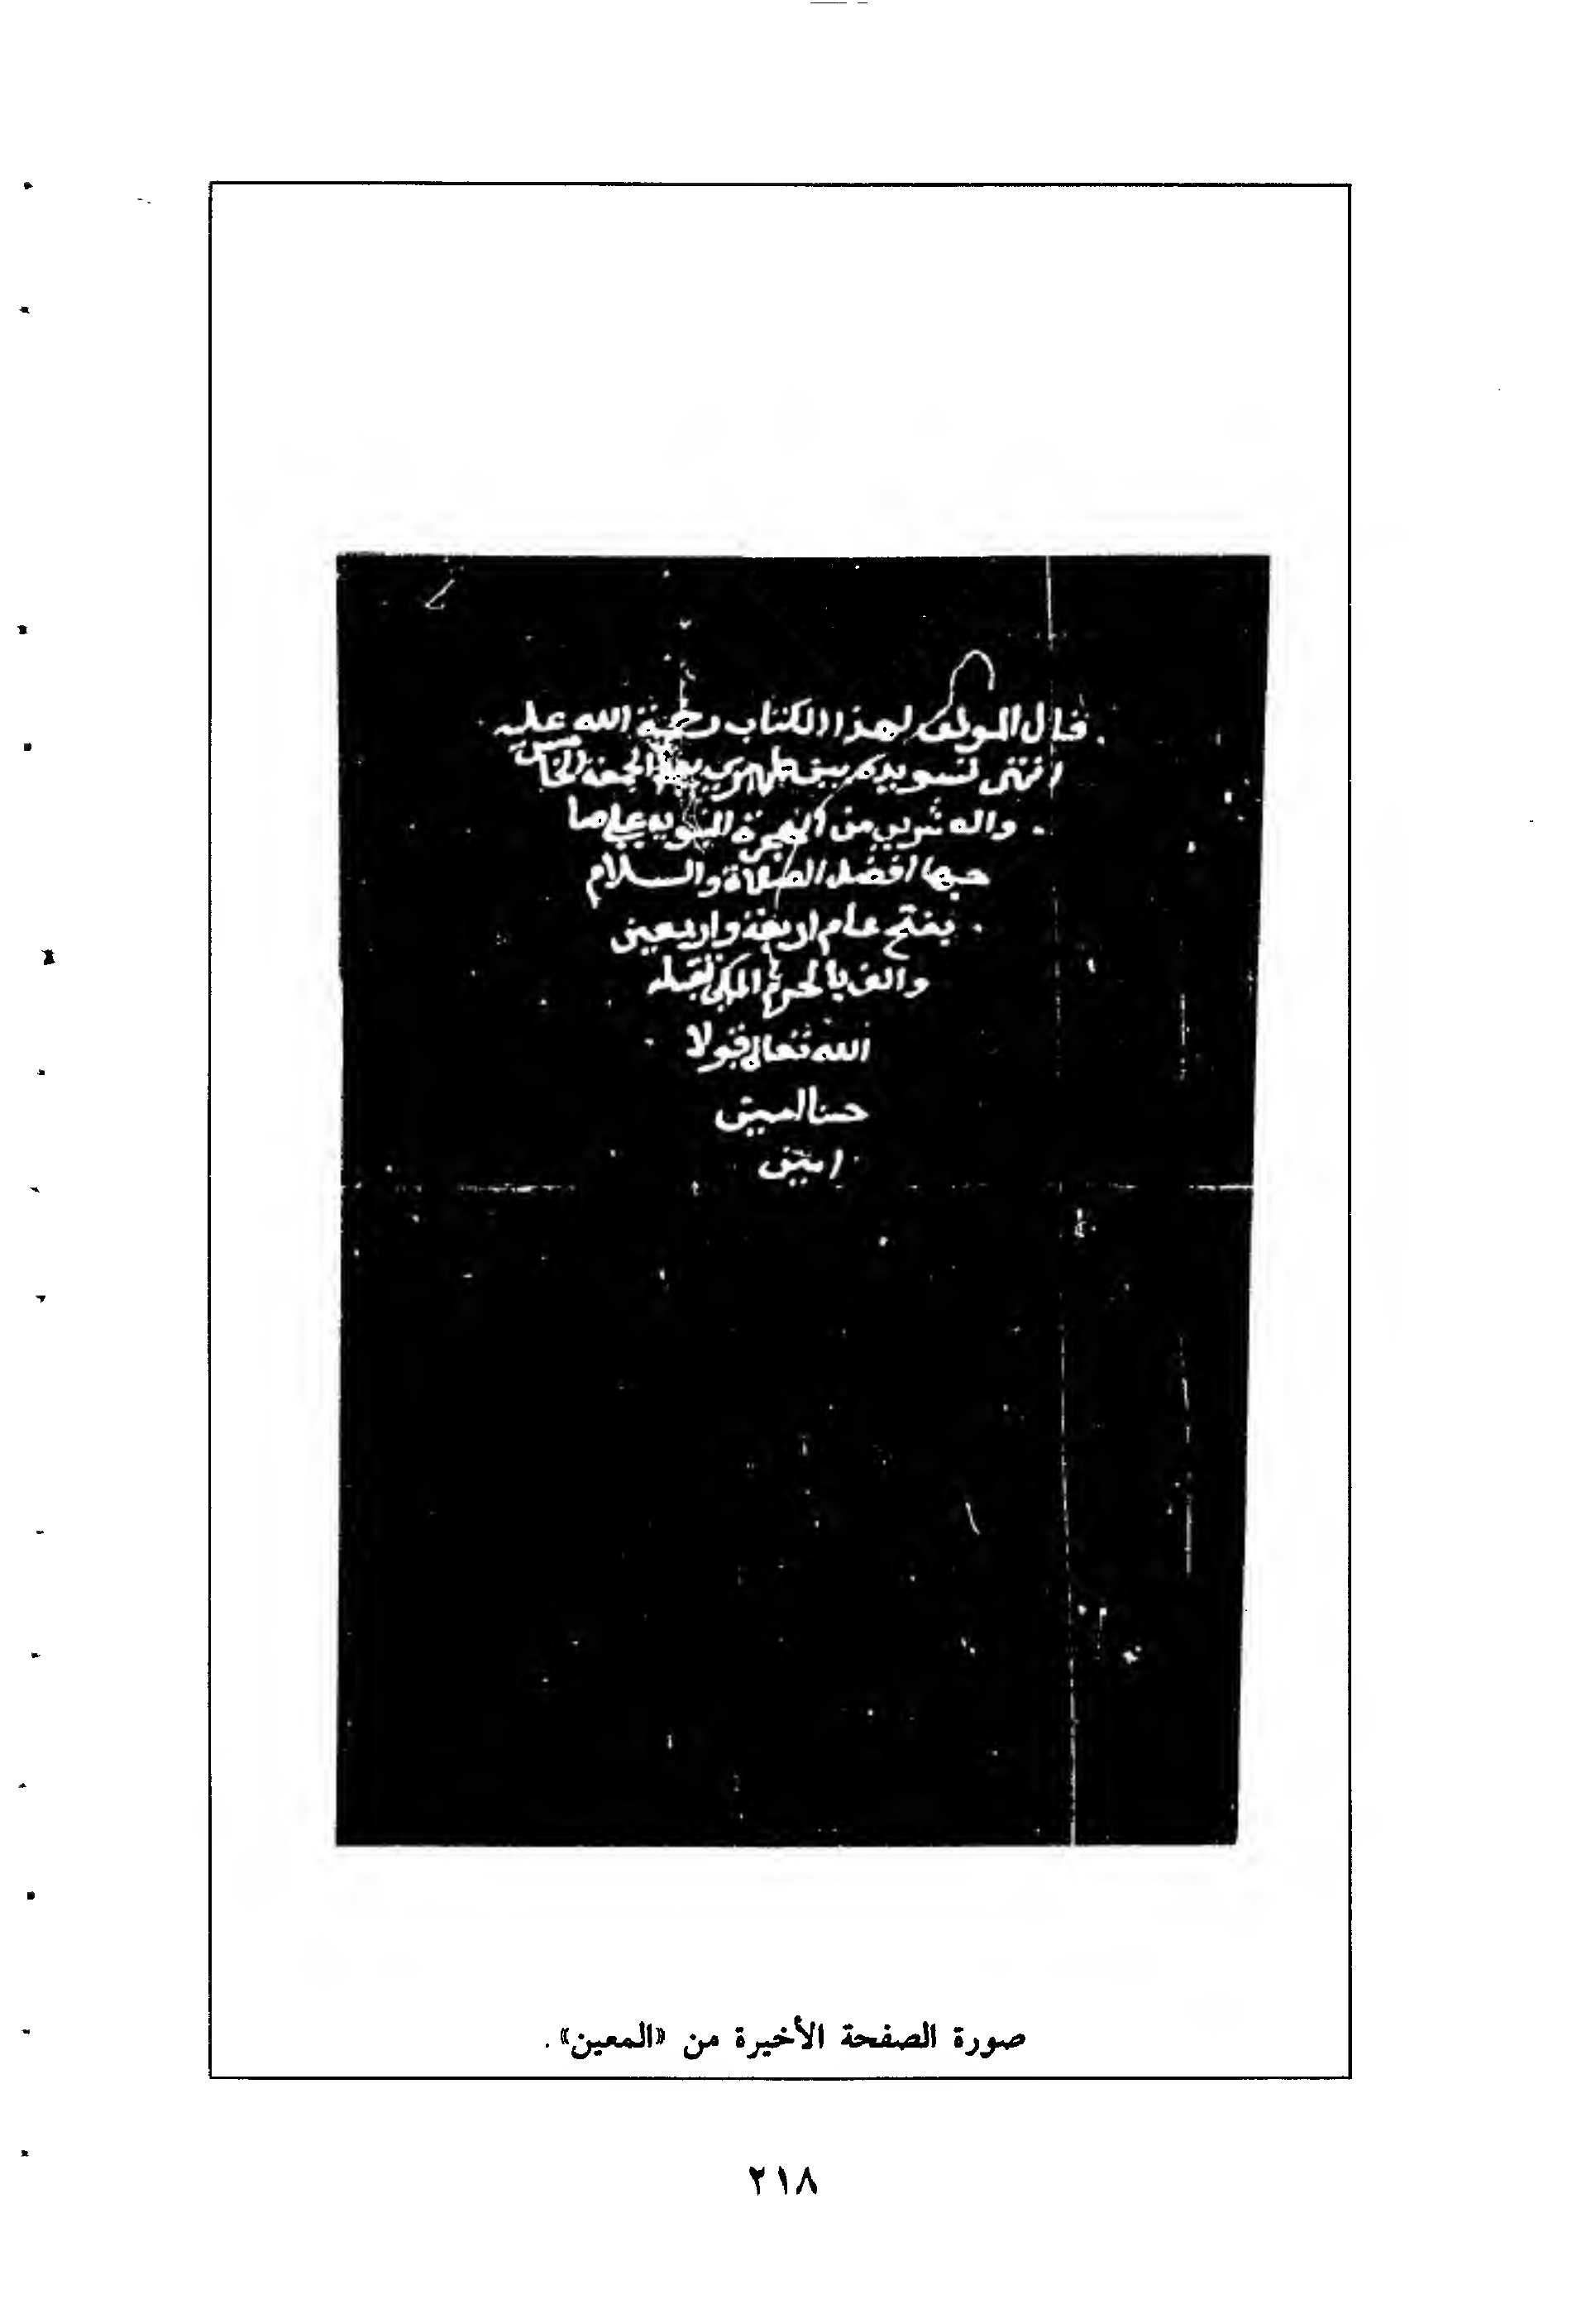 قال المولف لهذا الكتاب رحمة الله عليه
انتهى تسويده بين ظهري يوم الجمعة الخامس
والعشرين من الهجرة النبويه على صا
حبها افضل الصلاة والسلام
بفتح عام اربعة واربعين
والف بالحرم المكى تقبله
الله تعالى قبولا
حسنا اميين
اميين
صورة الصفحة الأخيرة من «المعين» .
٢١٨